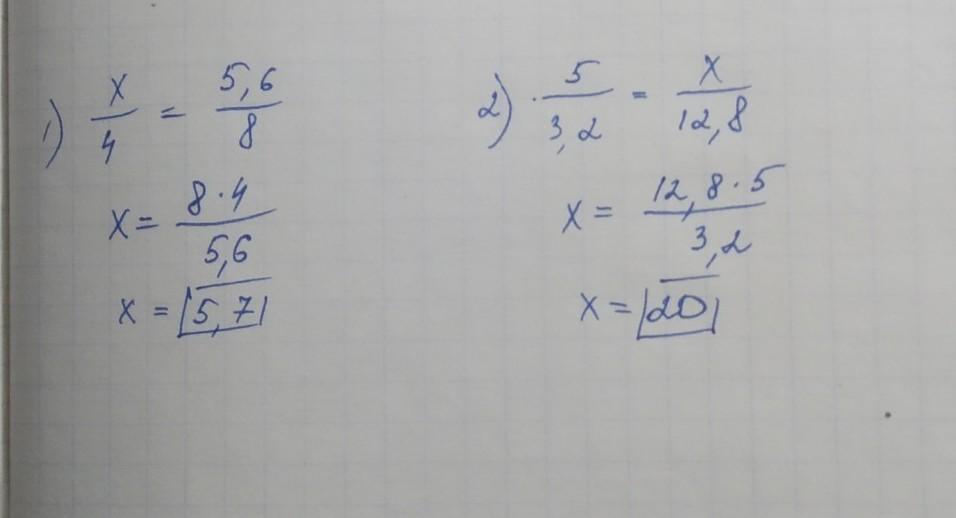 1) x/4 = 5,6/8
x = 8·4/5,6
x = 5,7
2) 5/3,2 = x/12,8
x = 12,8·5/3,2
x = 20